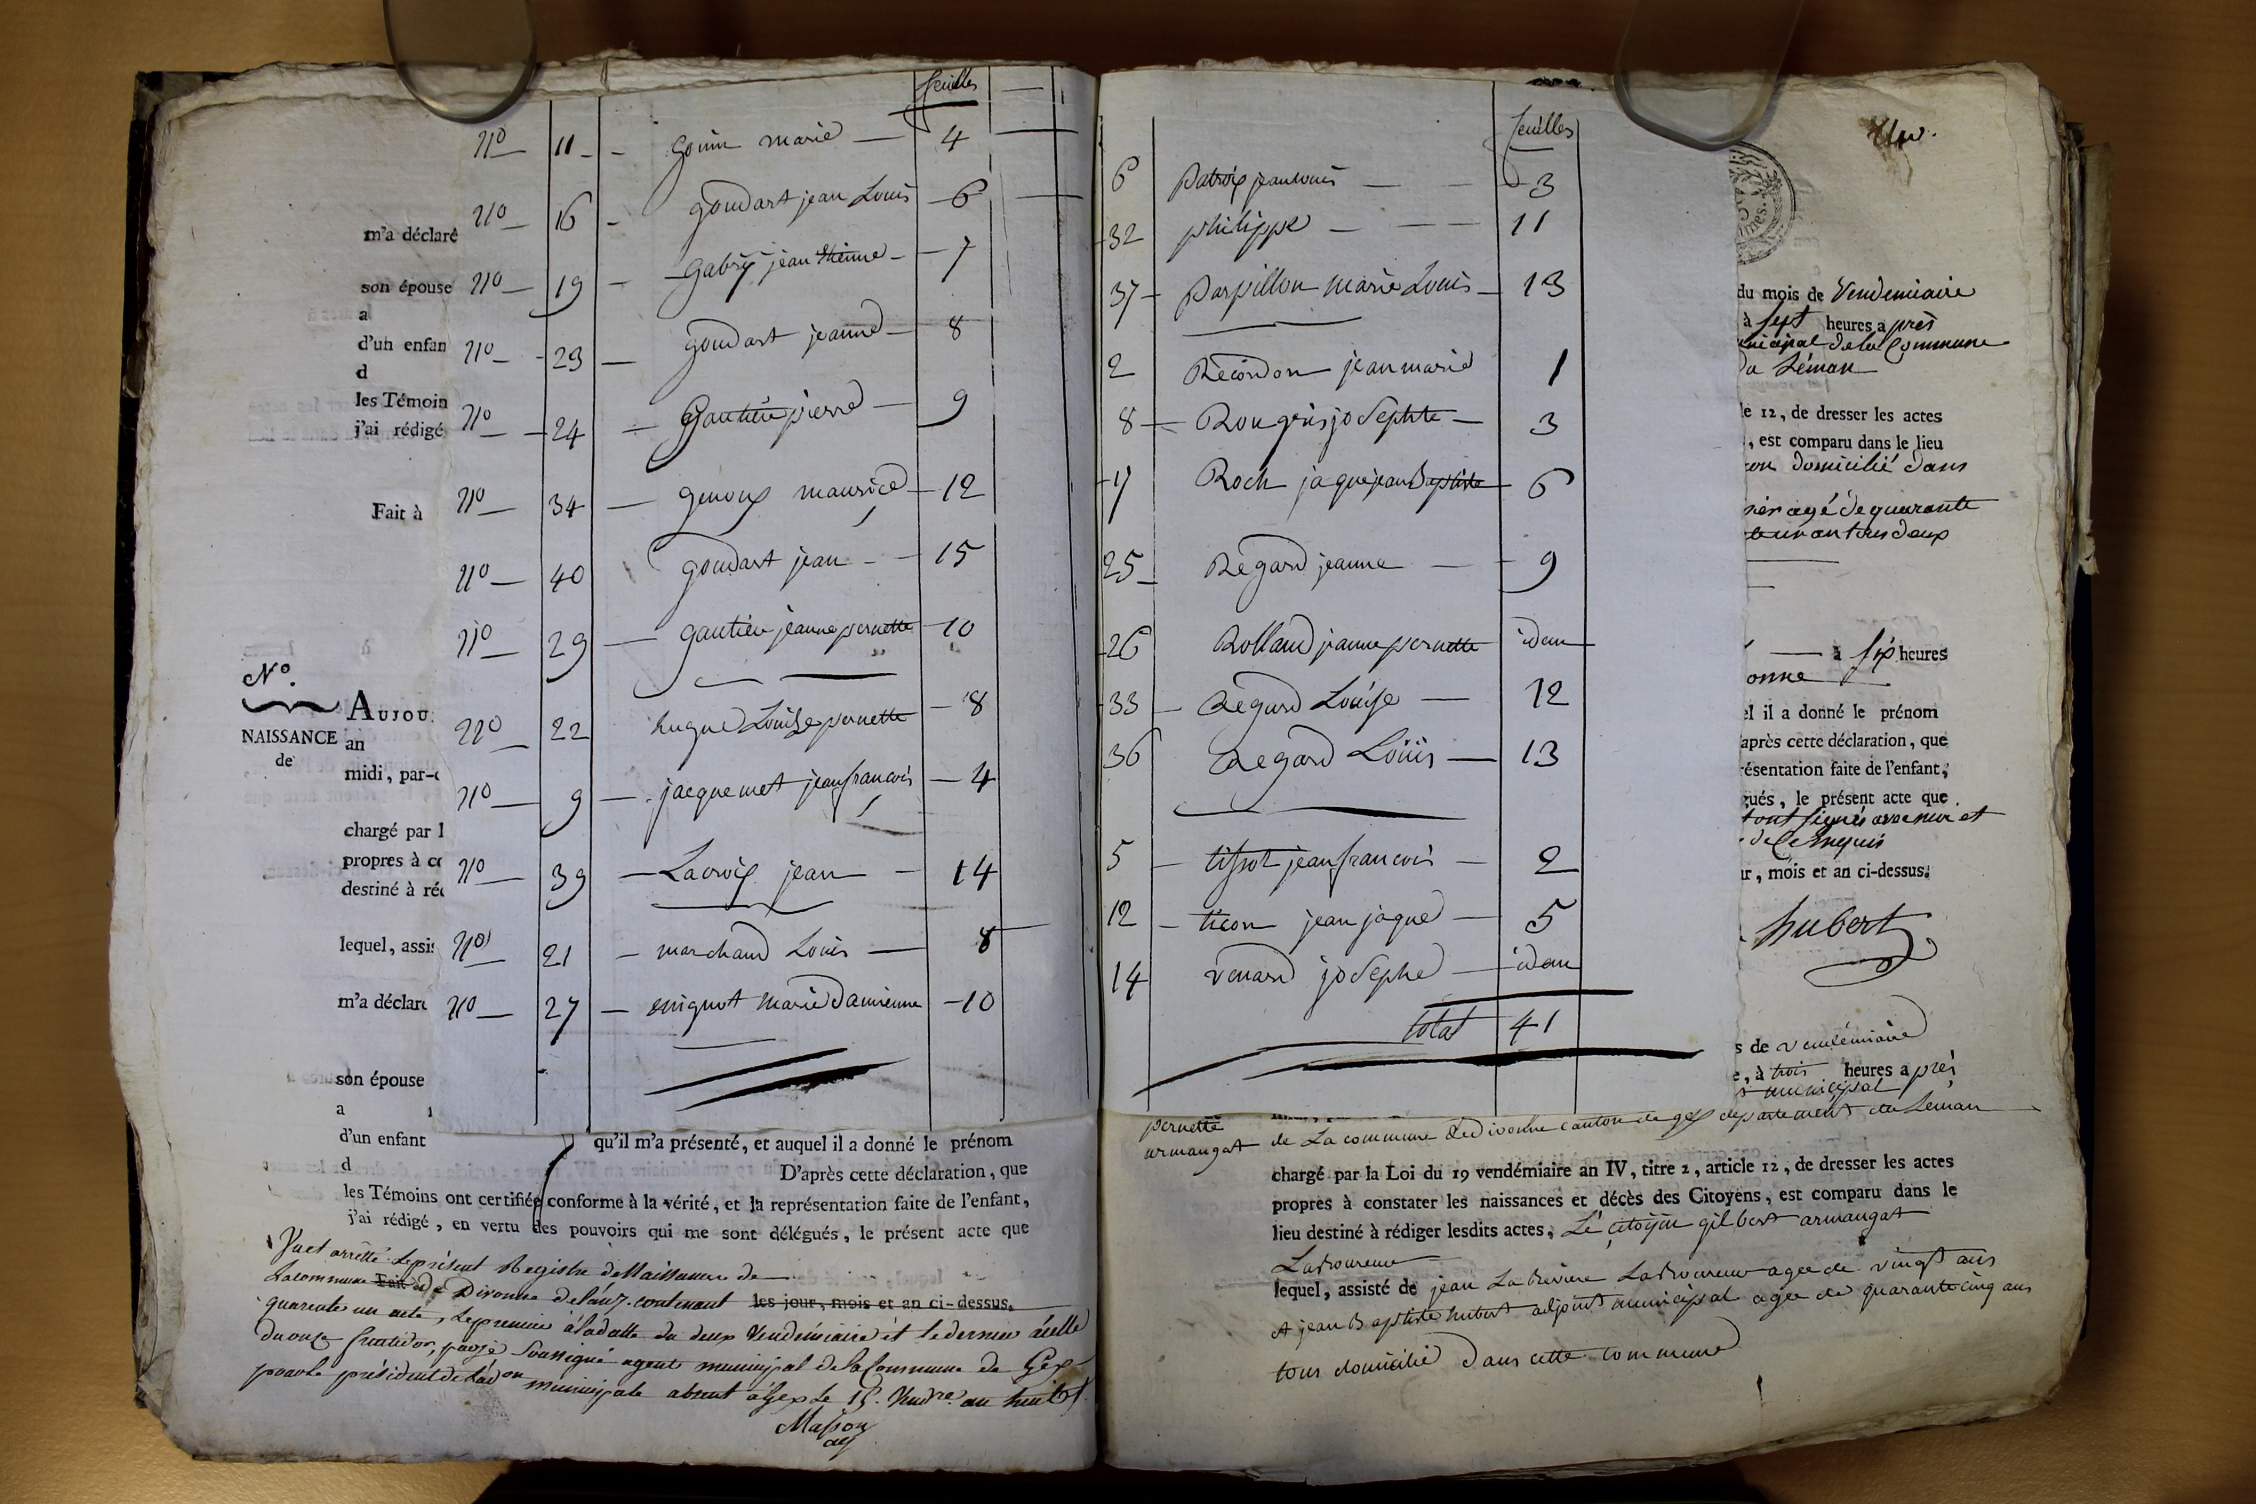 feuilles
no 11 - - Gouin marie — 4
no 16 - goudart jean Louis - 6
no 19 - gabrÿ jean etienne - 7
no - 23 — goudart jeanne - 8
no - 24 — Gautieu pierre - 9
no 34 — genoux maurice - 12
no 40 goudart jean - - 15
no 29 — gautieu jeanne pernette 10
no 22 hugue Louise pernette - 8
no 9 — jacquemet jean francois - 4
no 39 — Lacroix jean - 14
no 21 - marchand Louis — 8
no 27 — mignot marie damienne - 10
m'a déclaré
son épouse
a
d'un enfan
d
les Témoin
j'ai rédigé
Fait à
N°.
NAISSANCE
de
AUJOU
an
midi, par-
chargé par l
propres à co
destiné à réc
lequel, assis
m'a déclare
son épouse
a
d'un enfant
qu'il m'a présenté, et auquel il a donné le prénom
d D'après cette déclaration, que
les Témoins ont certifiée conforme à la vérité, et la représentation faite de l'enfant,
j'ai rédigé, en vertu des pouvoirs qui me sont délégués, le présent acte que
Vu et arretté le présent Registre de Naissance de
La commune de Divonne de l'an 7. contenant les jour, mois et an ci-dessus.
quarente un acte, le premier à la datte du deux Vendémiaire et le dernier à celle
du onze fructidor, par je soussigné agent municipal de la Commune de Gex
pour le président de l'ad.on municipale absent à Gex le 15. Vend.re an huit
Masson
feuilles
6 Patroix jean Louis — - 3
32 philippe — — 11
37 - Parpillon marie Louis - 13
2 Recordon jean marie 1
8 — Rougris josephte — 3
17 Roch jaque jean Baptiste 6
25 - Regard jeanne — - 9
26 Rolland jeanne pernette idem
33 - Regard Louise — 12
36 Regard Loüis — 13
5 - tissot jean francois — 2
12 - ticon jean jaque — 5
14 venard josephe — idem
total 41
du mois de Vendemiaire
à sept heures a près
municipal de la Commune
du Léman
le 12, de dresser les actes
, est comparu dans le lieu
domicilié dans
agé de quarante
un an tous deux
à six heures
onne
el il a donné le prénom
après cette déclaration, que
résentation faite de l'enfant,
gués, le présent acte que
ont signés avec moi et
ur, mois et an ci-dessus.
hubert
s de vendémiaire
e, à trois heures a près
municipal
pernette
armangat
de La commune de divonne canton de gex departement du Leman
chargé par la Loi du 19 vendémiaire an IV, titre 2, article 12, de dresser les actes
propres à constater les naissances et décès des Citoyens, est comparu dans le
lieu destiné à rédiger lesdits actes, Le citoÿin gilbert armangat
Laboureur
lequel, assisté de jean La Riviere Laboureur agee de vingt ans
et jean Baptiste hubert adjoint municipal agee de quarante cinq ans
tous domicilié dans cette commune